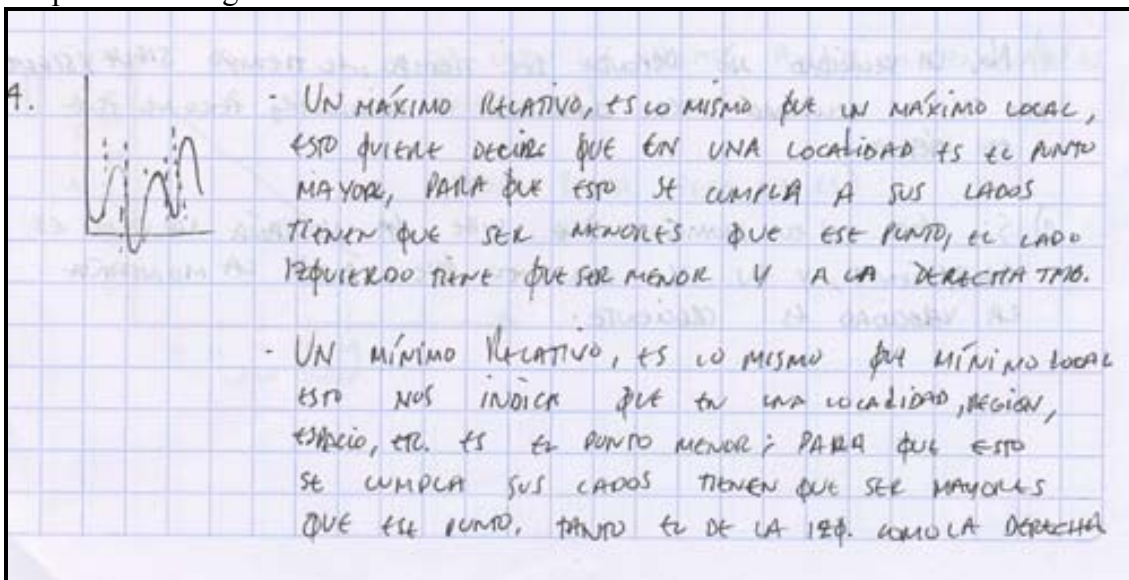 4.
- UN MÁXIMO RELATIVO, ES LO MISMO QUE UN MÁXIMO LOCAL,
ESTO QUIERE DECIR QUE EN UNA LOCALIDAD ES EL PUNTO
MAYOR, PARA QUE ESTO SE CUMPLA A SUS LADOS
TIENEN QUE SER MENORES QUE ESE PUNTO, EL LADO
IZQUIERDO TIENE QUE SER MENOR Y A LA DERECHA TMB.
- UN MÍNIMO RELATIVO, ES LO MISMO QUE MÍNIMO LOCAL
ESTO NOS INDICA QUE EN UNA LOCALIDAD, REGIÓN,
ESPACIO, ETC. ES EL PUNTO MENOR; PARA QUE ESTO
SE CUMPLA SUS LADOS TIENEN QUE SER MAYORES
QUE ESE PUNTO, TANTO EL DE LA IZQ. COMO LA DERECHA